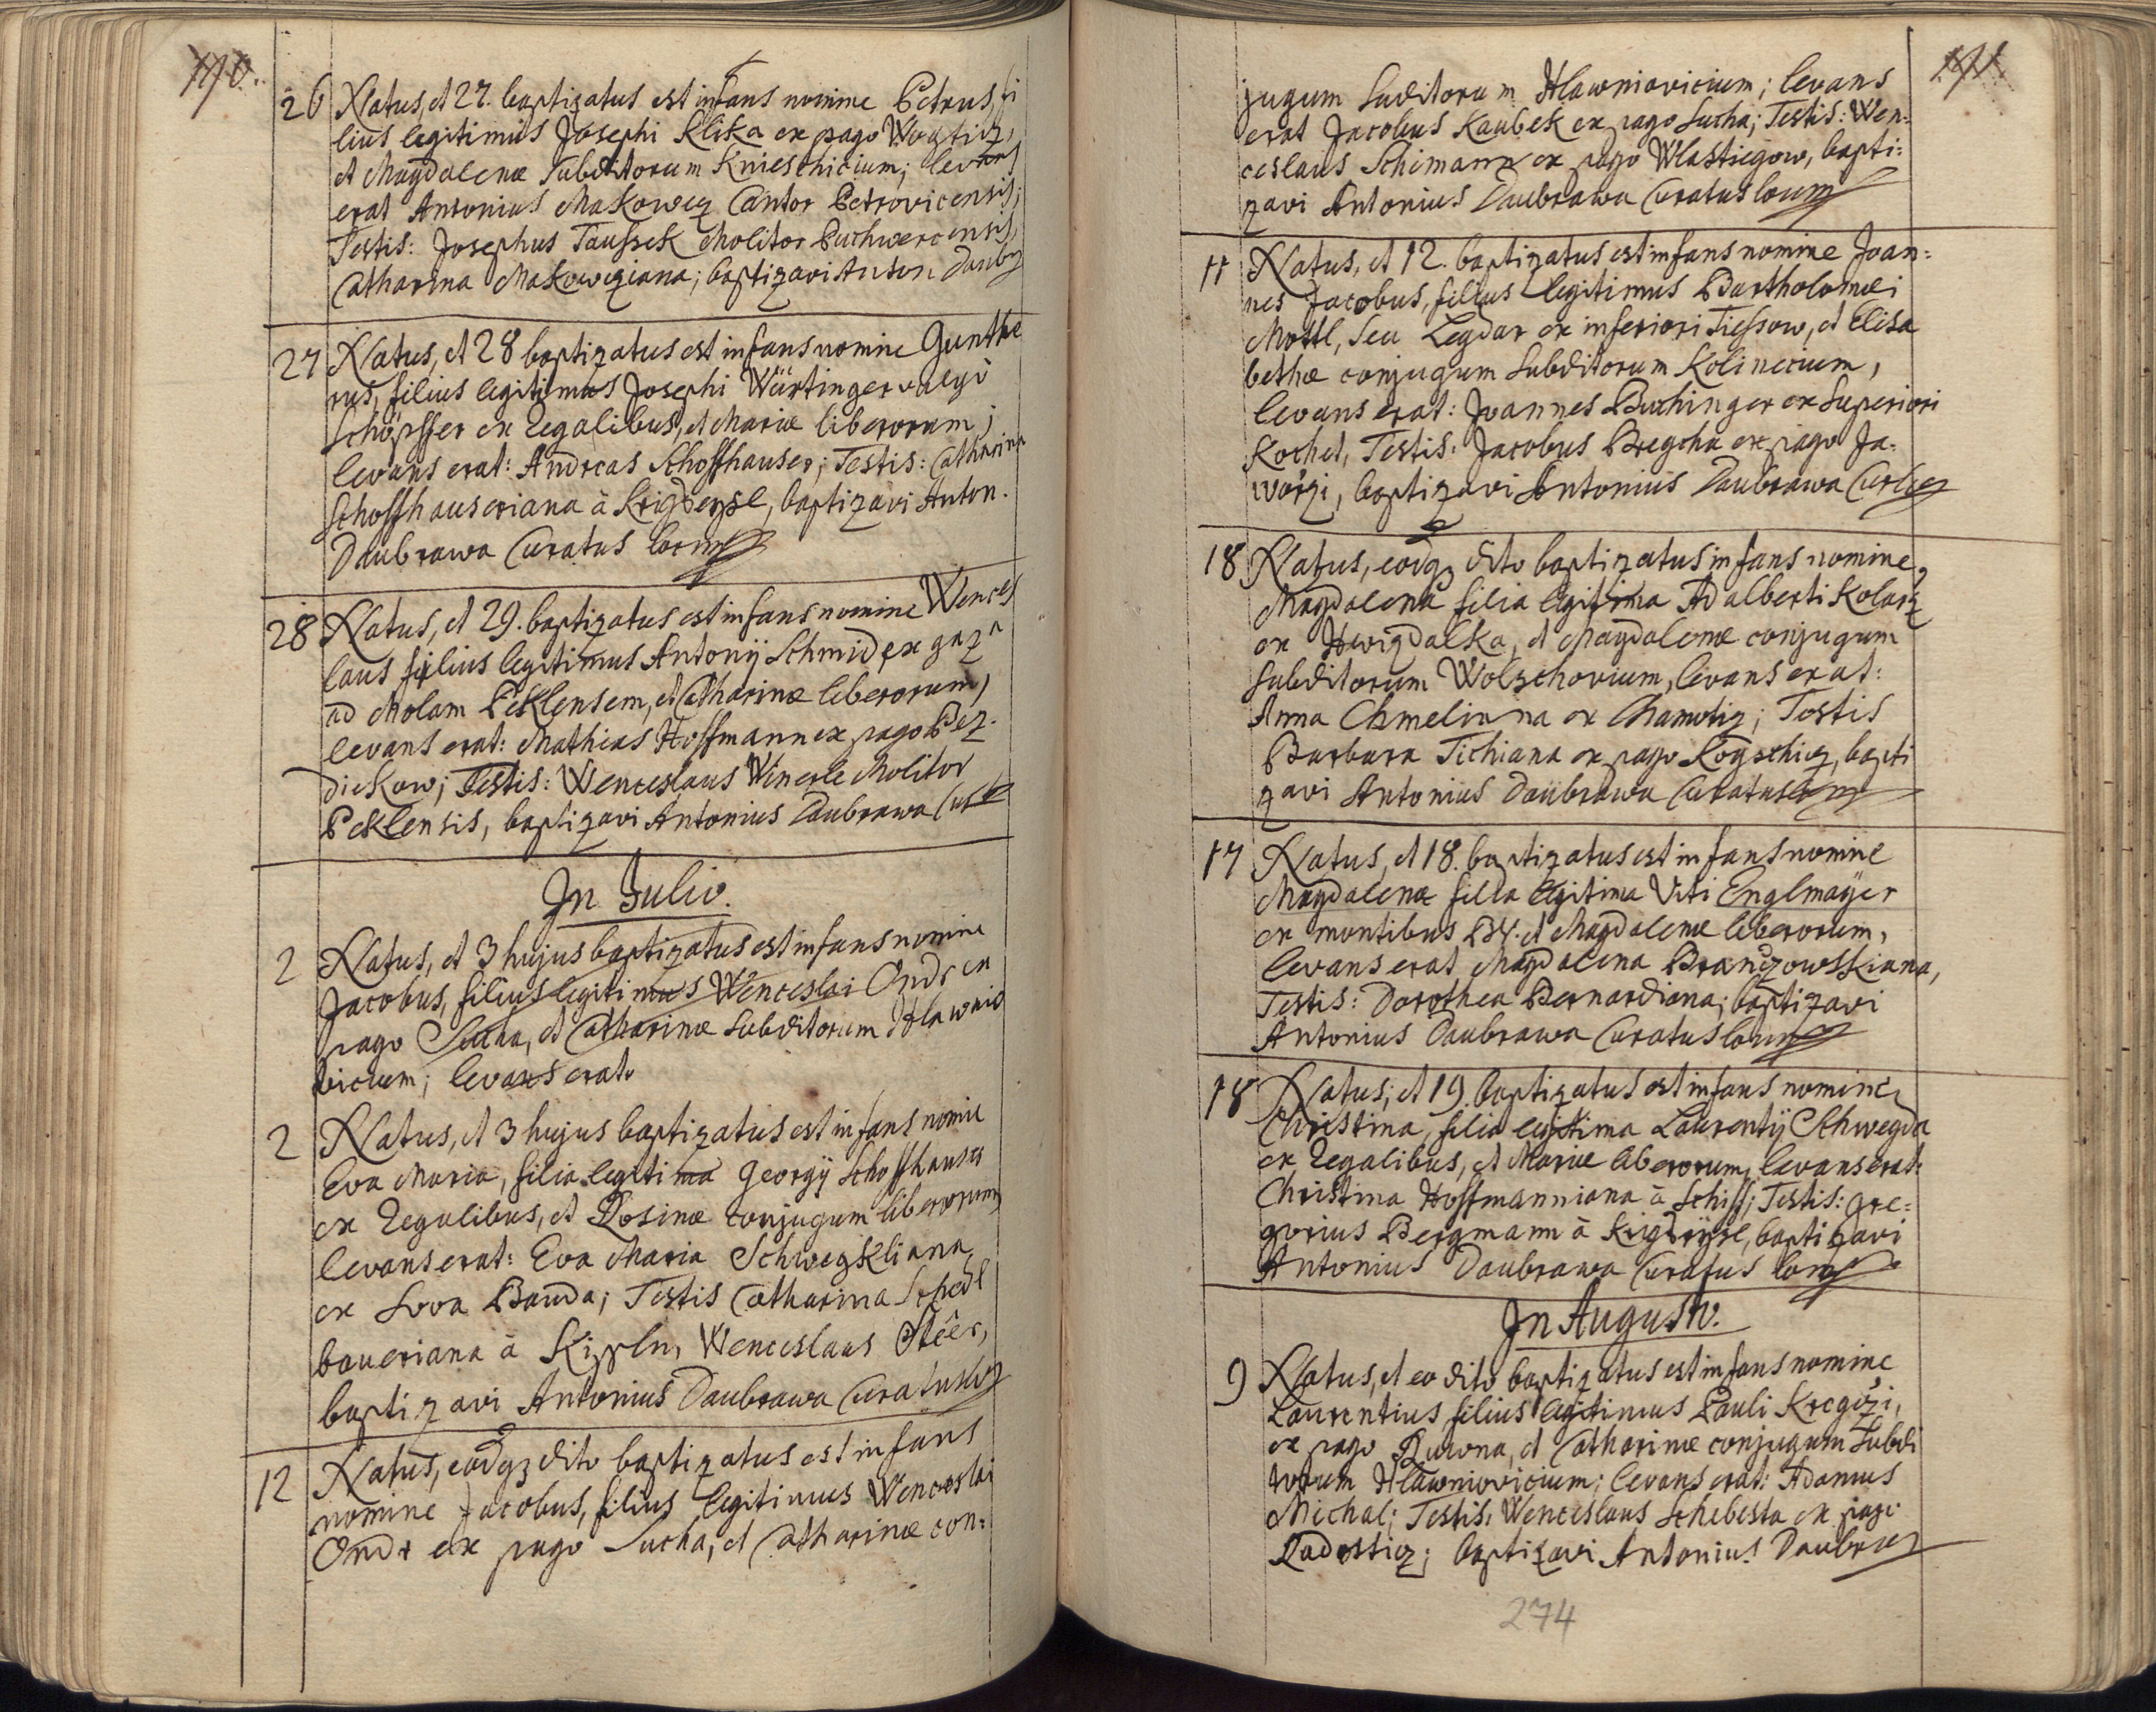 190.
26 Natus, et 27. baptizatus est infans nomine Petrus, fi
lius legitimus Josephi Klika ex pago Wogtiz,
et Magdalenæ Subditorum Knieschicium; levans
erat Antonius Makowez Cantor Petrovicensis;
Testis: Josephus Taussek Molitor Puchwercensis,
Catharina Makoweziana; baptizavi Anton Daub
27 Natus, et 28 baptizatus est infans nomine Gunthe
rus, filius legitimus Josephi Würtinger vulgò
Schöpffer ex Regalibus, et Mariæ liberorum;
levans erat: Andreas Schoffhauser; Testis: Catharina
Schoffhauseriana à Krigseysl, baptizavi Anton.
Daubrawa Curatus loci
28 Natus, et 29. baptizatus est infans nomine Wences
laus filius legitimus Antonij Schmid ex gaza
ad Molam Peklensem, et Catharinæ liberorum,
levans erat: Mathias Hoffmann ex pago Bez
diekow; Testis: Wenceslaus Winerle Molitor
Peklensis, baptizavi Antonius Daubrawa Cur
In Julio.
2 Natus, et 3 hujus baptizatus est infans nomine
Jacobus, filius legitimus Wenceslai Ondr ex
pago Sucha, et Catharinæ Subditorum Hlawnio
vicium; levans erat
2 Natus, et 3 hujus baptizatus est infans nomine
Eva Maria, filia legitima Georgij Schoffhauser
ex Regalibus, et Rosinæ conjugum liberorum
levans erat: Eva Maria Schwegkliana
ex Lova Bauda; Testis Catharina Schedl
baueriana à Kippln, Wenceslaus Stèer,
baptizavi Antonius Daubrawa Curatus
12 Natus, eodq dito baptizatus est infans
nomine Jacobus, filius legitimus Wenceslai
Ondr ex pago Sucha, et Catharinæ con:
191
jugum Suditorum Hlawniovicium; levans
erat Jacobus Kaubek ex pago Sucha; Testis: Wen:
ceslaus Schimann ex pago Wlastiegow, bapti:
zavi Antonius Daubrawa Curatus loci
11 Natus, et 12. baptizatus est infans nomine Joan:
nes Jacobus, filius legitimus Bartholomæi
Mottl, seu Legdar ex inferiori Tiessow, et Elisa
bethæ conjugum Subditorum Kolinecium,
levans erat: Joannes Buchinger ex Superiori
Kochet, Testis: Jacobus Bregcha ex pago Ja:
worzi, baptizavi Antonius Daubrawa Cur
18 Natus, eodq dito baptizatus infans nomine
Magdalena filia legitima Adalberti Kolarz
ex Hwizdalka, et Magdalenæ conjugum
Subditorum Wolschovium, levans erat:
Anna Chmeliana ex Chamutiz; Testis
Barbara Tichiana ex pago Kogschiz, bapti
zavi Antonius Daubrawa Curatus
17 Natus, et 18. baptizatus est infans nomine
Magdalena filia legitima Viti Englmayer
ex montibus B:V. et Magdalenæ liberorum,
levans erat Magdalena Brandzowskiana,
Testis: Dorothea Bernardiana; baptizavi
Antonius Daubrawa Curatus loci
18 Natus, et 19. baptizatus est infans nomine
Christina, filia legitima Laurentij Schwegda
ex Regalibus, et Mariæ liberorum, levans erat
Christina Hoffmanniana à Schiff; Testis: Gre:
gorius Bergmann à Krigseysl, baptizavi
Antonius Daubrawa Curatus loci
In Augusto.
9 Natus, et eo dito baptizatus est infans nomine
Laurentius filius legitimus Pauli Kregczi,
ex pago Ruwna, et Catharinæ conjugum Subdi
torum Hlawniovicium; levans erat: Adamus
Michal; Testis: Wenceslaus Schebesta ex pago
Radostiz; baptizavi Antonius Daubra
274